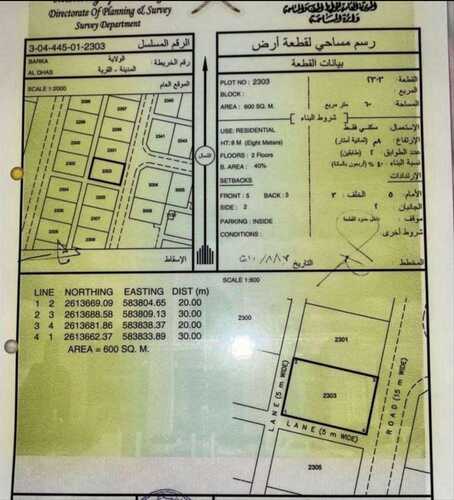 Directorate Of Planning & Survey
Survey Department
3-04-445-01-2303 الرقم المسلسل
رسم مساحي لقطعة أرض
BARKA الولاية
AL DHAS المدينة - القرية
رقم الخريطة
SCALE 1:2000 الموقع العام
بيانات القطعة
PLOT NO : 2303 القطعة : ٢٣٠٣
BLOCK : المربع :
AREA : 600 SQ. M. متر مربع المساحة :
شروط البناء
USE: RESIDENTIAL سكني فقط الإستعمال:
HT: 8 M (Eight Meters) ٨م (ثمانية أمتار) الإرتفاع:
FLOORS : 2 Floors ٢ (طابقين) عدد الطوابق :
B. AREA : 40% ٤٠% (أربعون بالمائة) نسبة البناء :
SETBACKS الإرتدادات:
FRONT : 5 BACK : 3 ٣ الخلف : ٥ الأمام :
SIDE : 2 ٢ الجانبان :
PARKING : INSIDE داخل حدود القطعة موقف:
CONDITIONS : شروط أخرى :
2303
الشمال
الإسقاط
التاريخ
المخطط
SCALE 1:600
LINE NORTHING EASTING DIST (m)
1 2 2613669.09 583804.65 20.00
2 3 2613688.58 583809.13 30.00
3 4 2613681.86 583838.37 20.00
4 1 2613662.37 583833.89 30.00
AREA = 600 SQ. M.
2300
2301
2303
2305
LANE (5 m WIDE)
LANE (5 m WIDE)
ROAD (15 m WIDE)